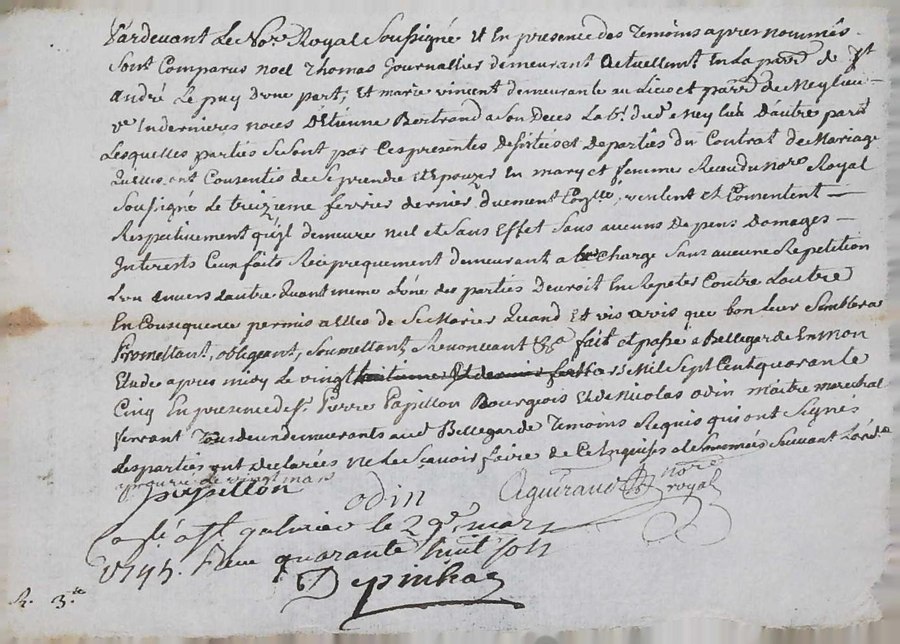 Pardevant Le No.re Royal Soussigné et En presence des Temoins apres nommés
Sont Comparus noel Thomas Journallier demeurant actuellement En La parr.e de St
andré Le puy d'une part, Et marie vincent demeurante au Lieu et parr.e de Meylieu
v.e En dernieres noces d'Etienne Bertrand a son Deces Lab.r du d. meylieu d'autre part
Lesquelles parties se sont par Ces presentes desistées et departies du Contrat de Mariage
qu'elles ont Consentis de se prendre et Epouser En mary et femme Receu du no.re Royal
Soussigné Le treizieme fevrier dernier duement Con.llé, veulent et Consentent
Respectivement qu'il demeure nul et Sans Effet Sans aucuns Depens Domages
Interests Ceux faits Reciproquement demeurant a Charge Sans aucune Repetition
L'un Envers L'autre Quant meme L'une des parties Devroit En Repeter Contre L'autre
En Consequence permis a Elles de Se Marier Quand Et vis avis que bon Leur Semblera
Promettant, obligeant, Soumettant, Renonceant &a fait et passé a Bellegarde En mon
Etude apres midy Le vingt mars Mil Sept Cent quarante
Cinq En presence de S.r Pierre Papillon Bourgeois Et de Nicolas odin Maitre marechal
ferrant Tous deux demeurants aud Bellegarde Temoins Requis qui ont Signés
Les parties ont declarées ne Le Scavoir faire de Ce Enquises et Sommées Suivant L'ord.e
approuvé le vingt mars
papillon odin Aguiraud no.re royal
Con.lé a St galmier le 29e mars
1745. Reçu quarante huit sols
Depinhac
R. 3.